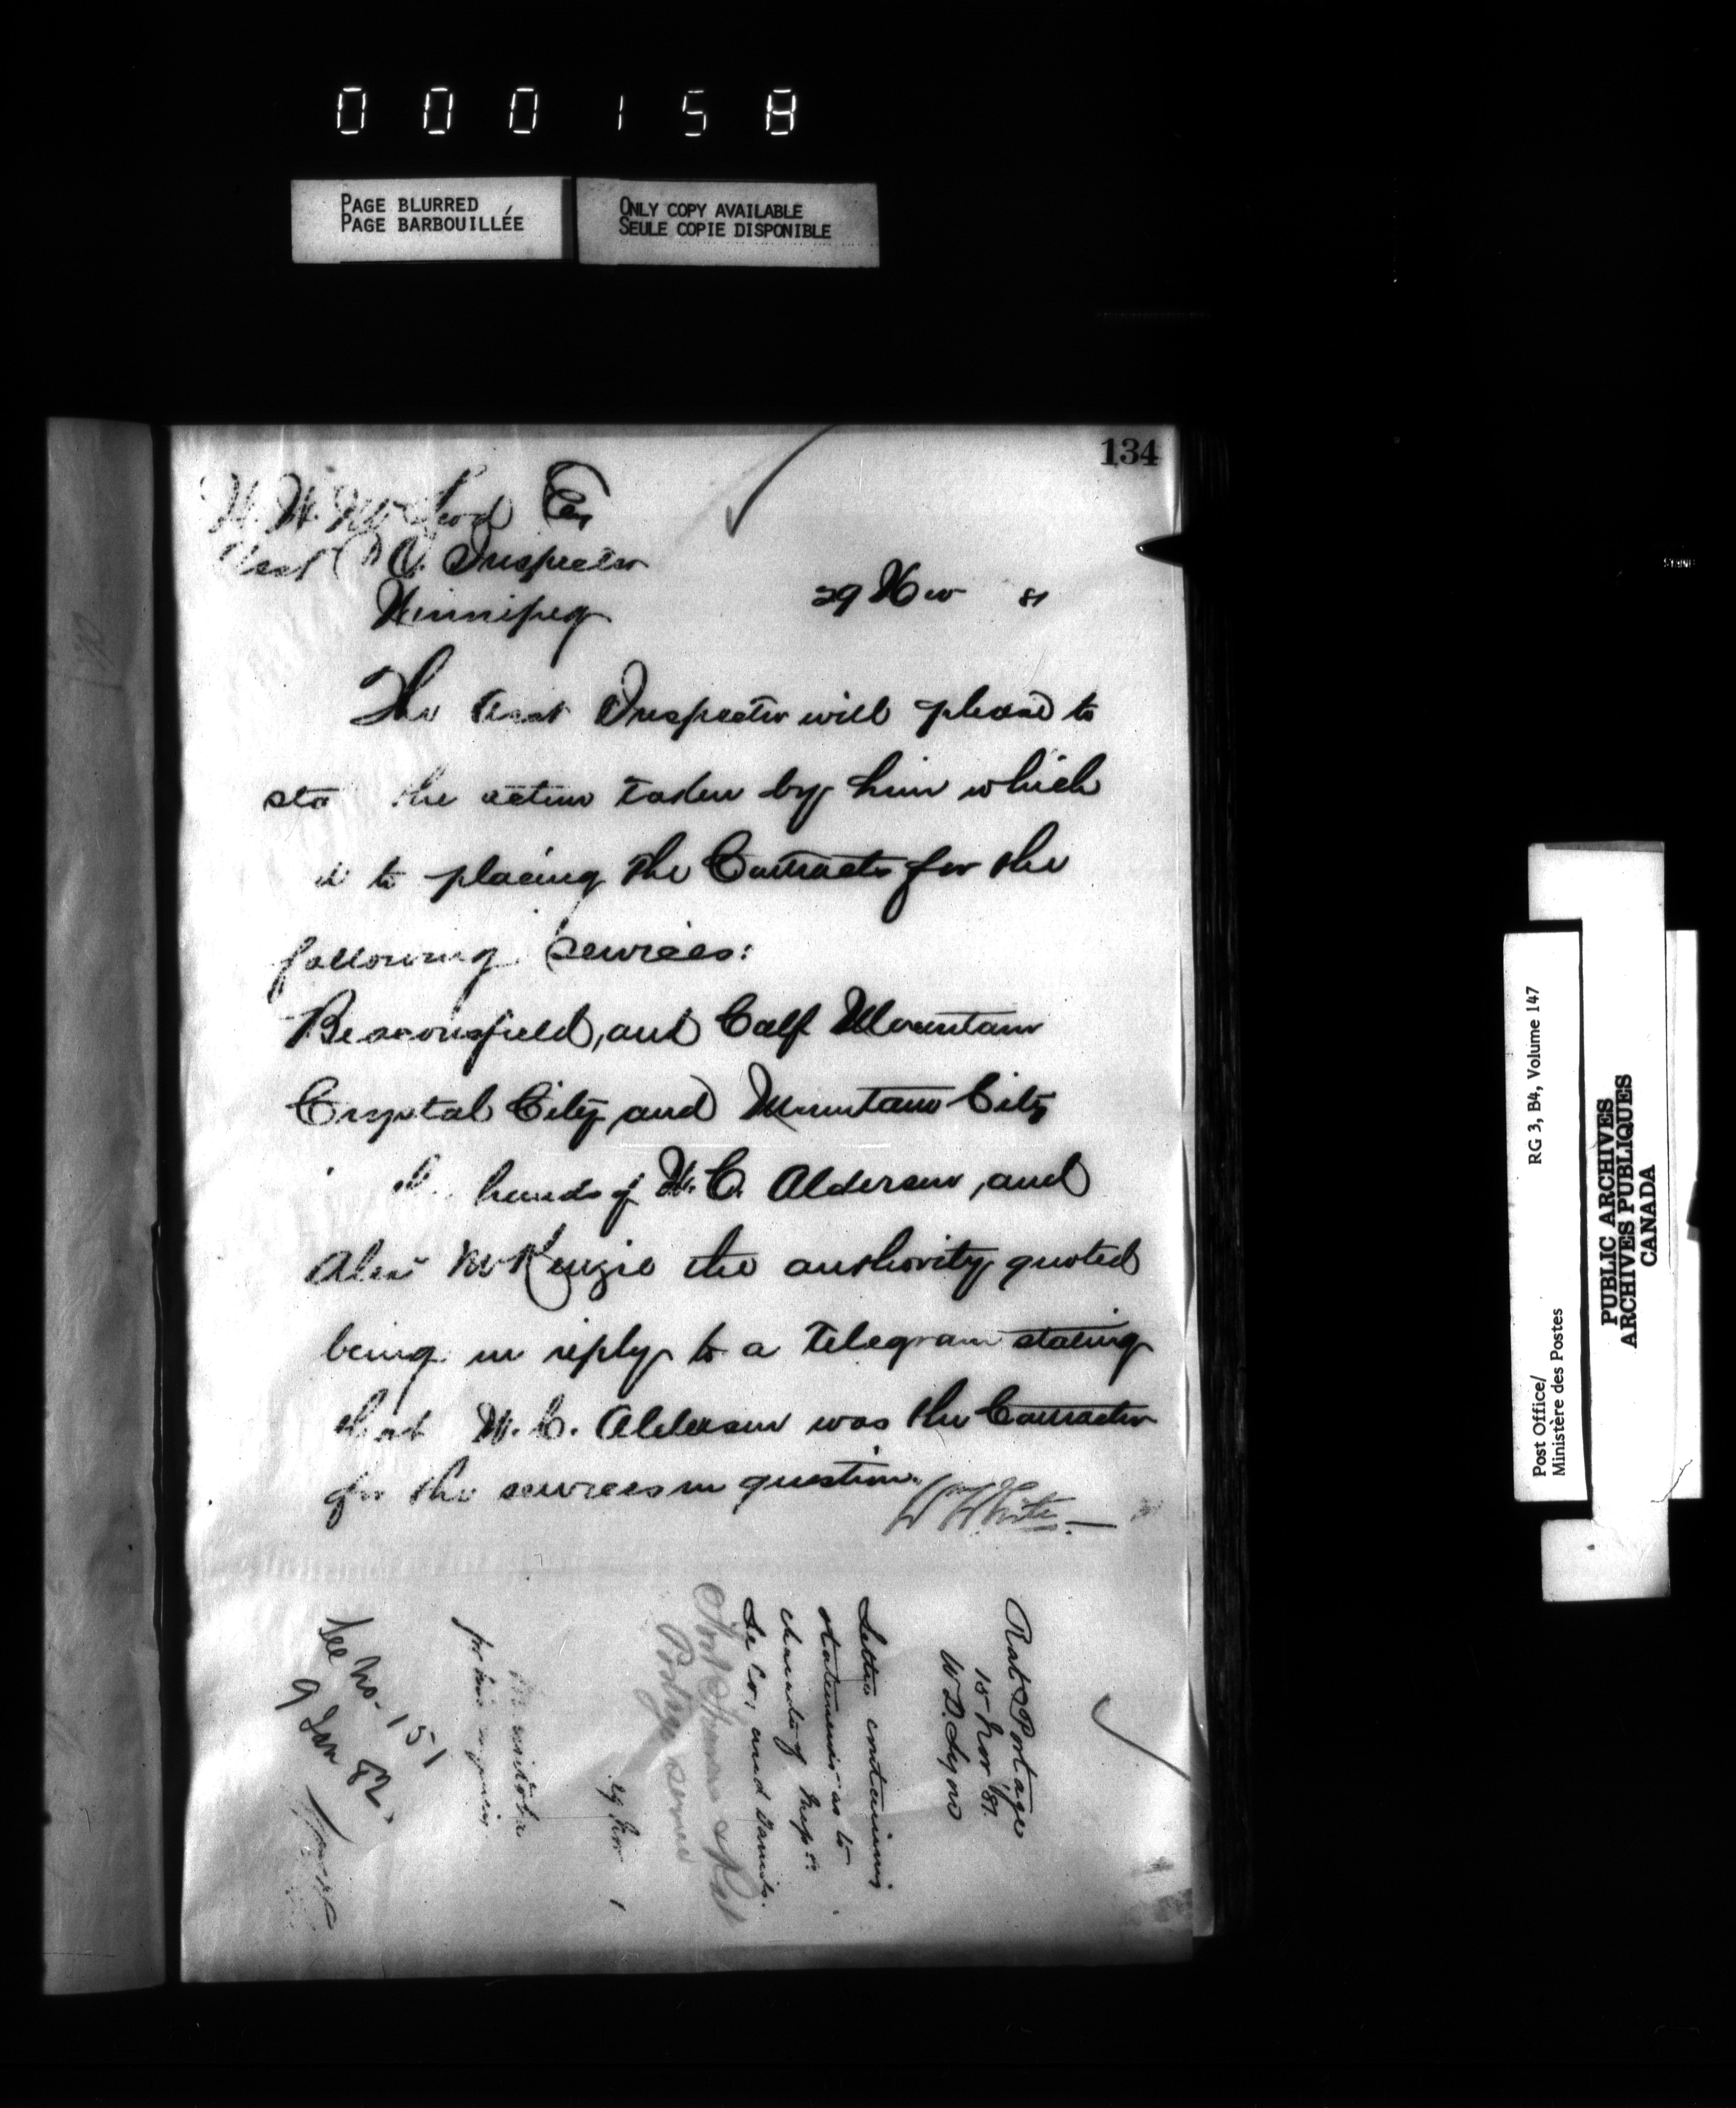 000158
PAGE BLURRED
PAGE BARBOUILLÉE
ONLY COPY AVAILABLE
SEULE COPIE DISPONIBLE
134
W. W. McLeod Esq
Asst P. O. Inspector
Winnipeg
29 Nov 81
The Asst Inspector will please to
sta the action taken by him which
d to placing the Contracts for the
following services:
Beaconsfield, and Calf Mountain
Crystal City and Mountain City
hands of W. C. Alderson, and
Alex McKenzie the authority quoted
being in reply to a Telegram stating
that W. C. Alderson was the Contractor
for the services in question.
W White
Rat Portage
15 Nov '81.
W D. Lyon
Letter containing
statements as to
character of Insp
& Co, and Danils.
Rat
Portage service
29 Nov 1
Manitoba
for his
See No. 151
9 Jan 82.
RG 3, B4, Volume 147
Post Office/
Ministère des Postes
PUBLIC ARCHIVES
ARCHIVES PUBLIQUES
CANADA